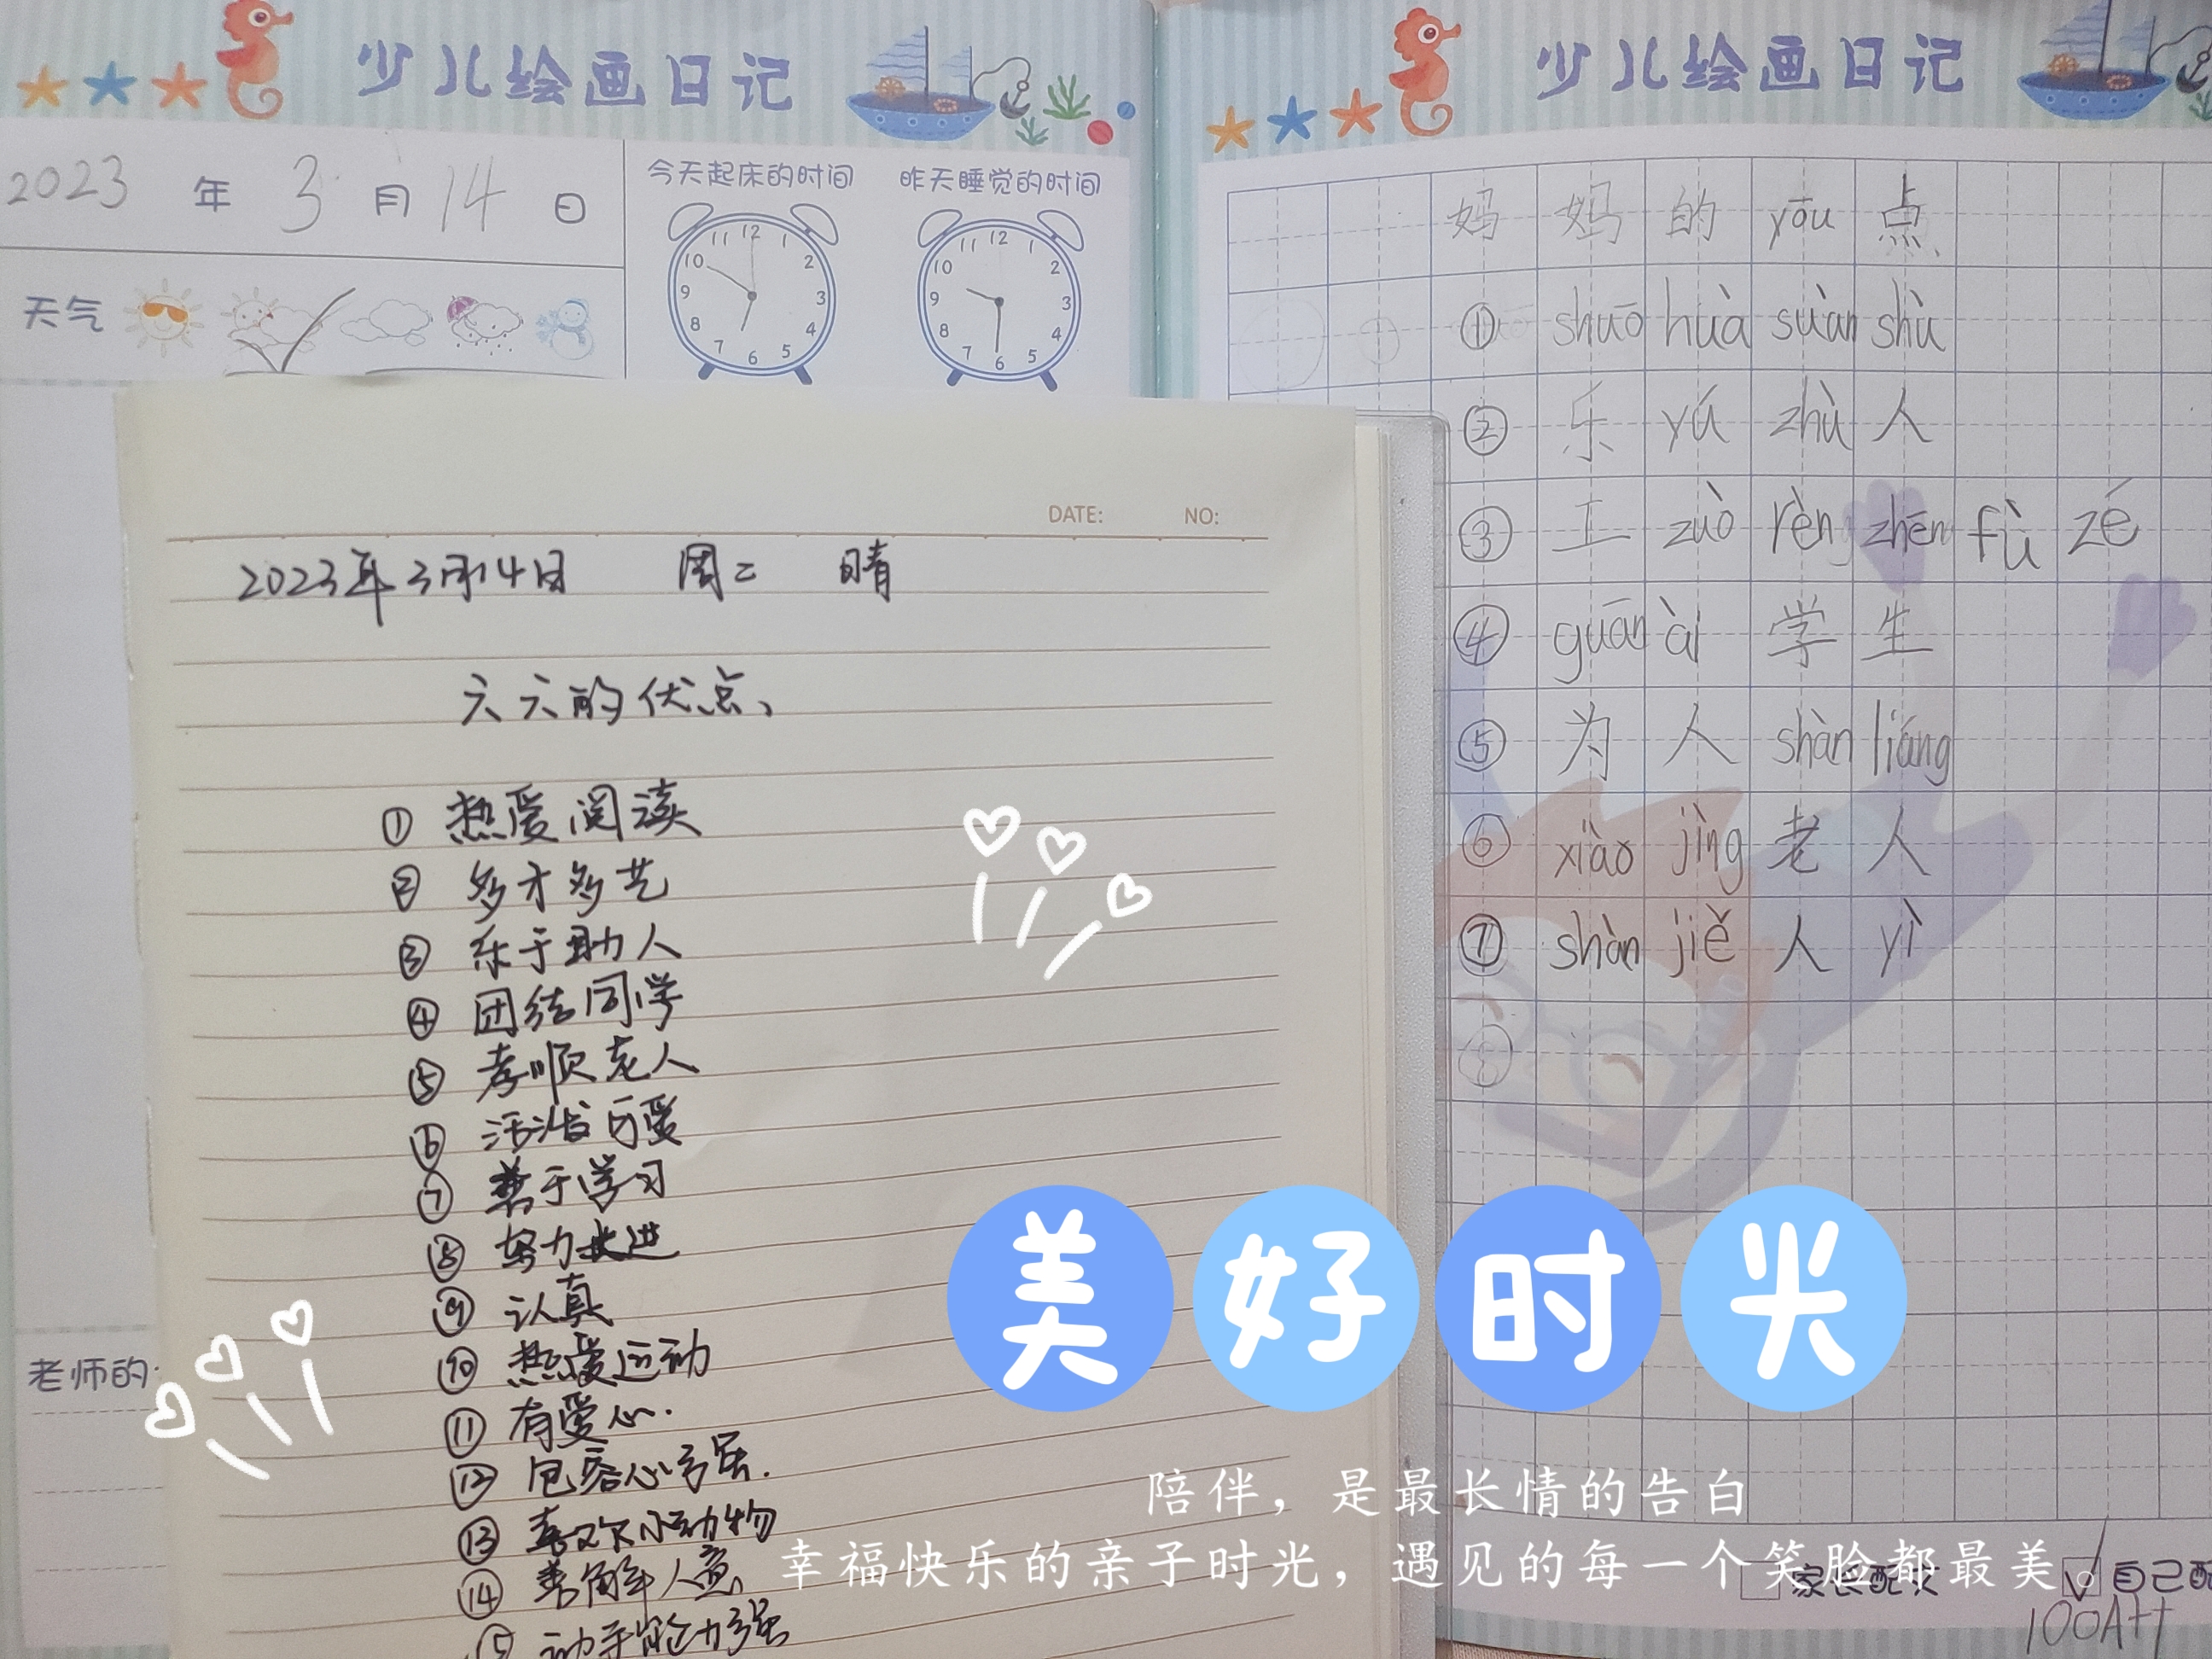 少儿绘画日记
2023年3月14日
今天起床的时间
昨天睡觉的时间
天气
11 12 1
10 2
9 3
8 4
7 6 5
11 12 1
10 2
9 3
8 4
7 6 5
老师的
DATE: NO:
2023年3月14日 周二 晴
六六的优点、
① 热爱阅读
② 多才多艺
③ 乐于助人
④ 团结同学
⑤ 孝顺老人
⑥ 活泼可爱
⑦ 善于学习
⑧ 努力上进
⑨ 认真
⑩ 热爱运动
⑪ 有爱心.
⑫ 包容心强.
⑬ 喜欢小动物
⑭ 善解人意
⑮ 动手能力强
少儿绘画日记
妈妈的yōu点
① shuō huà suàn shù
② 乐yú zhù人
③ 工zuò rèn zhēn fù zé
④ guān ài学生
⑤ 为人shàn liáng
⑥ xiào jìng老人
⑦ shàn jiě人yì
⑧
美好时光
陪伴，是最长情的告白
幸福快乐的亲子时光，遇见的每一个笑脸都最美。
家长配文 自己配
100A++